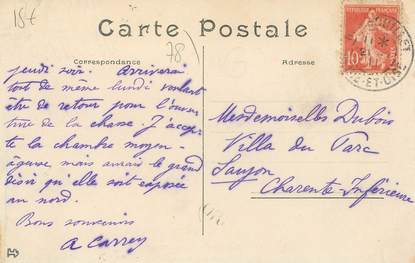 15f
Carte Postale
78
Correspondance
Adresse
RÉPUBLIQUE FRANÇAISE
10
jeudi soir. Arriverai
tout de même lundi voulant
être de retour pour l'ouver
ture de la chasse. J'accep
te la chambre moyen-
âgeuse mais aurais le grand
désir qu'elle soit exposée
au nord.
Bons souvenirs
A Carrey
Mesdemoiselles Dubois
Villa du Parc
Saujon
Charente Inférieure